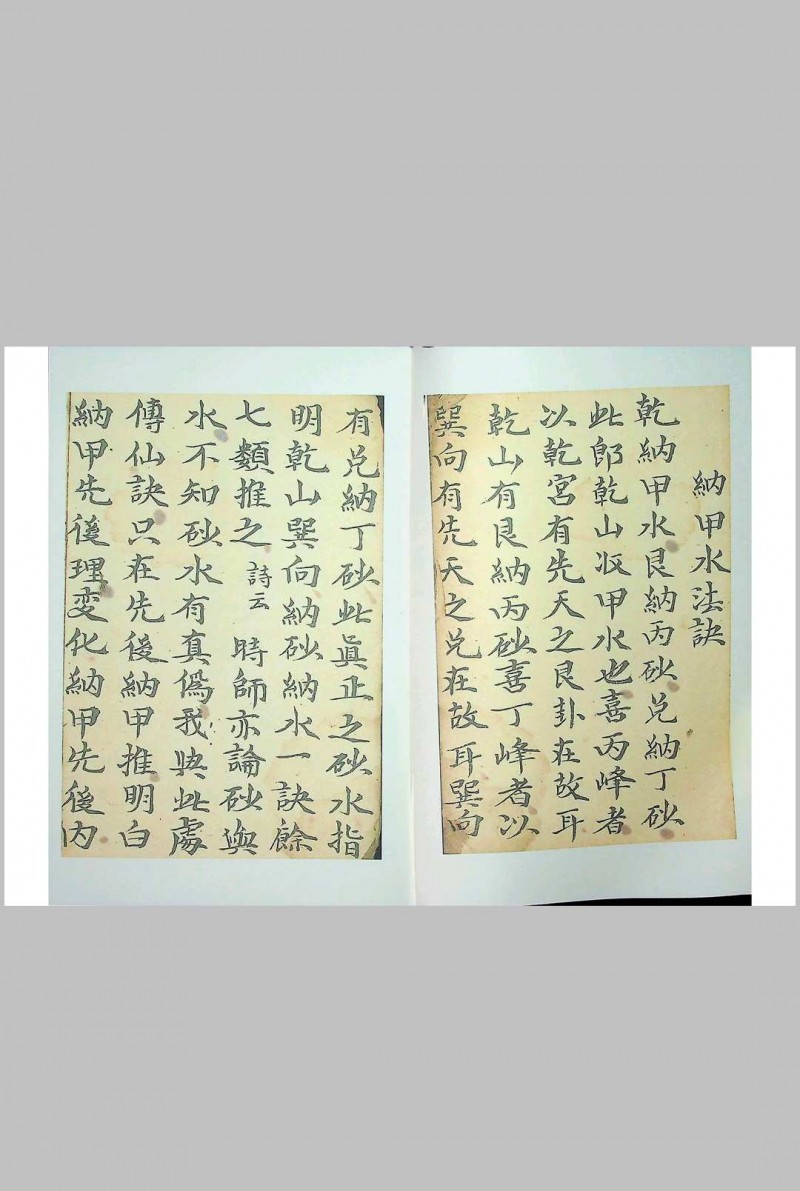 納甲水法訣
乾納甲水艮納丙砂兑納丁砂
此郎乾山収甲水也喜丙峰者
以乾宮有先天之艮卦在故耳
乾山有艮納丙砂喜丁峰者以
巽向有先天之兑在故耳巽向
有兑納丁砂此真正之砂水指
明乾山巽向納砂納水一訣餘
七類推之 詩云 時師亦論砂與
水不知砂水有真偽我與此處
傳仙訣只在先後納甲推明白
納甲先後理変化納甲先後内